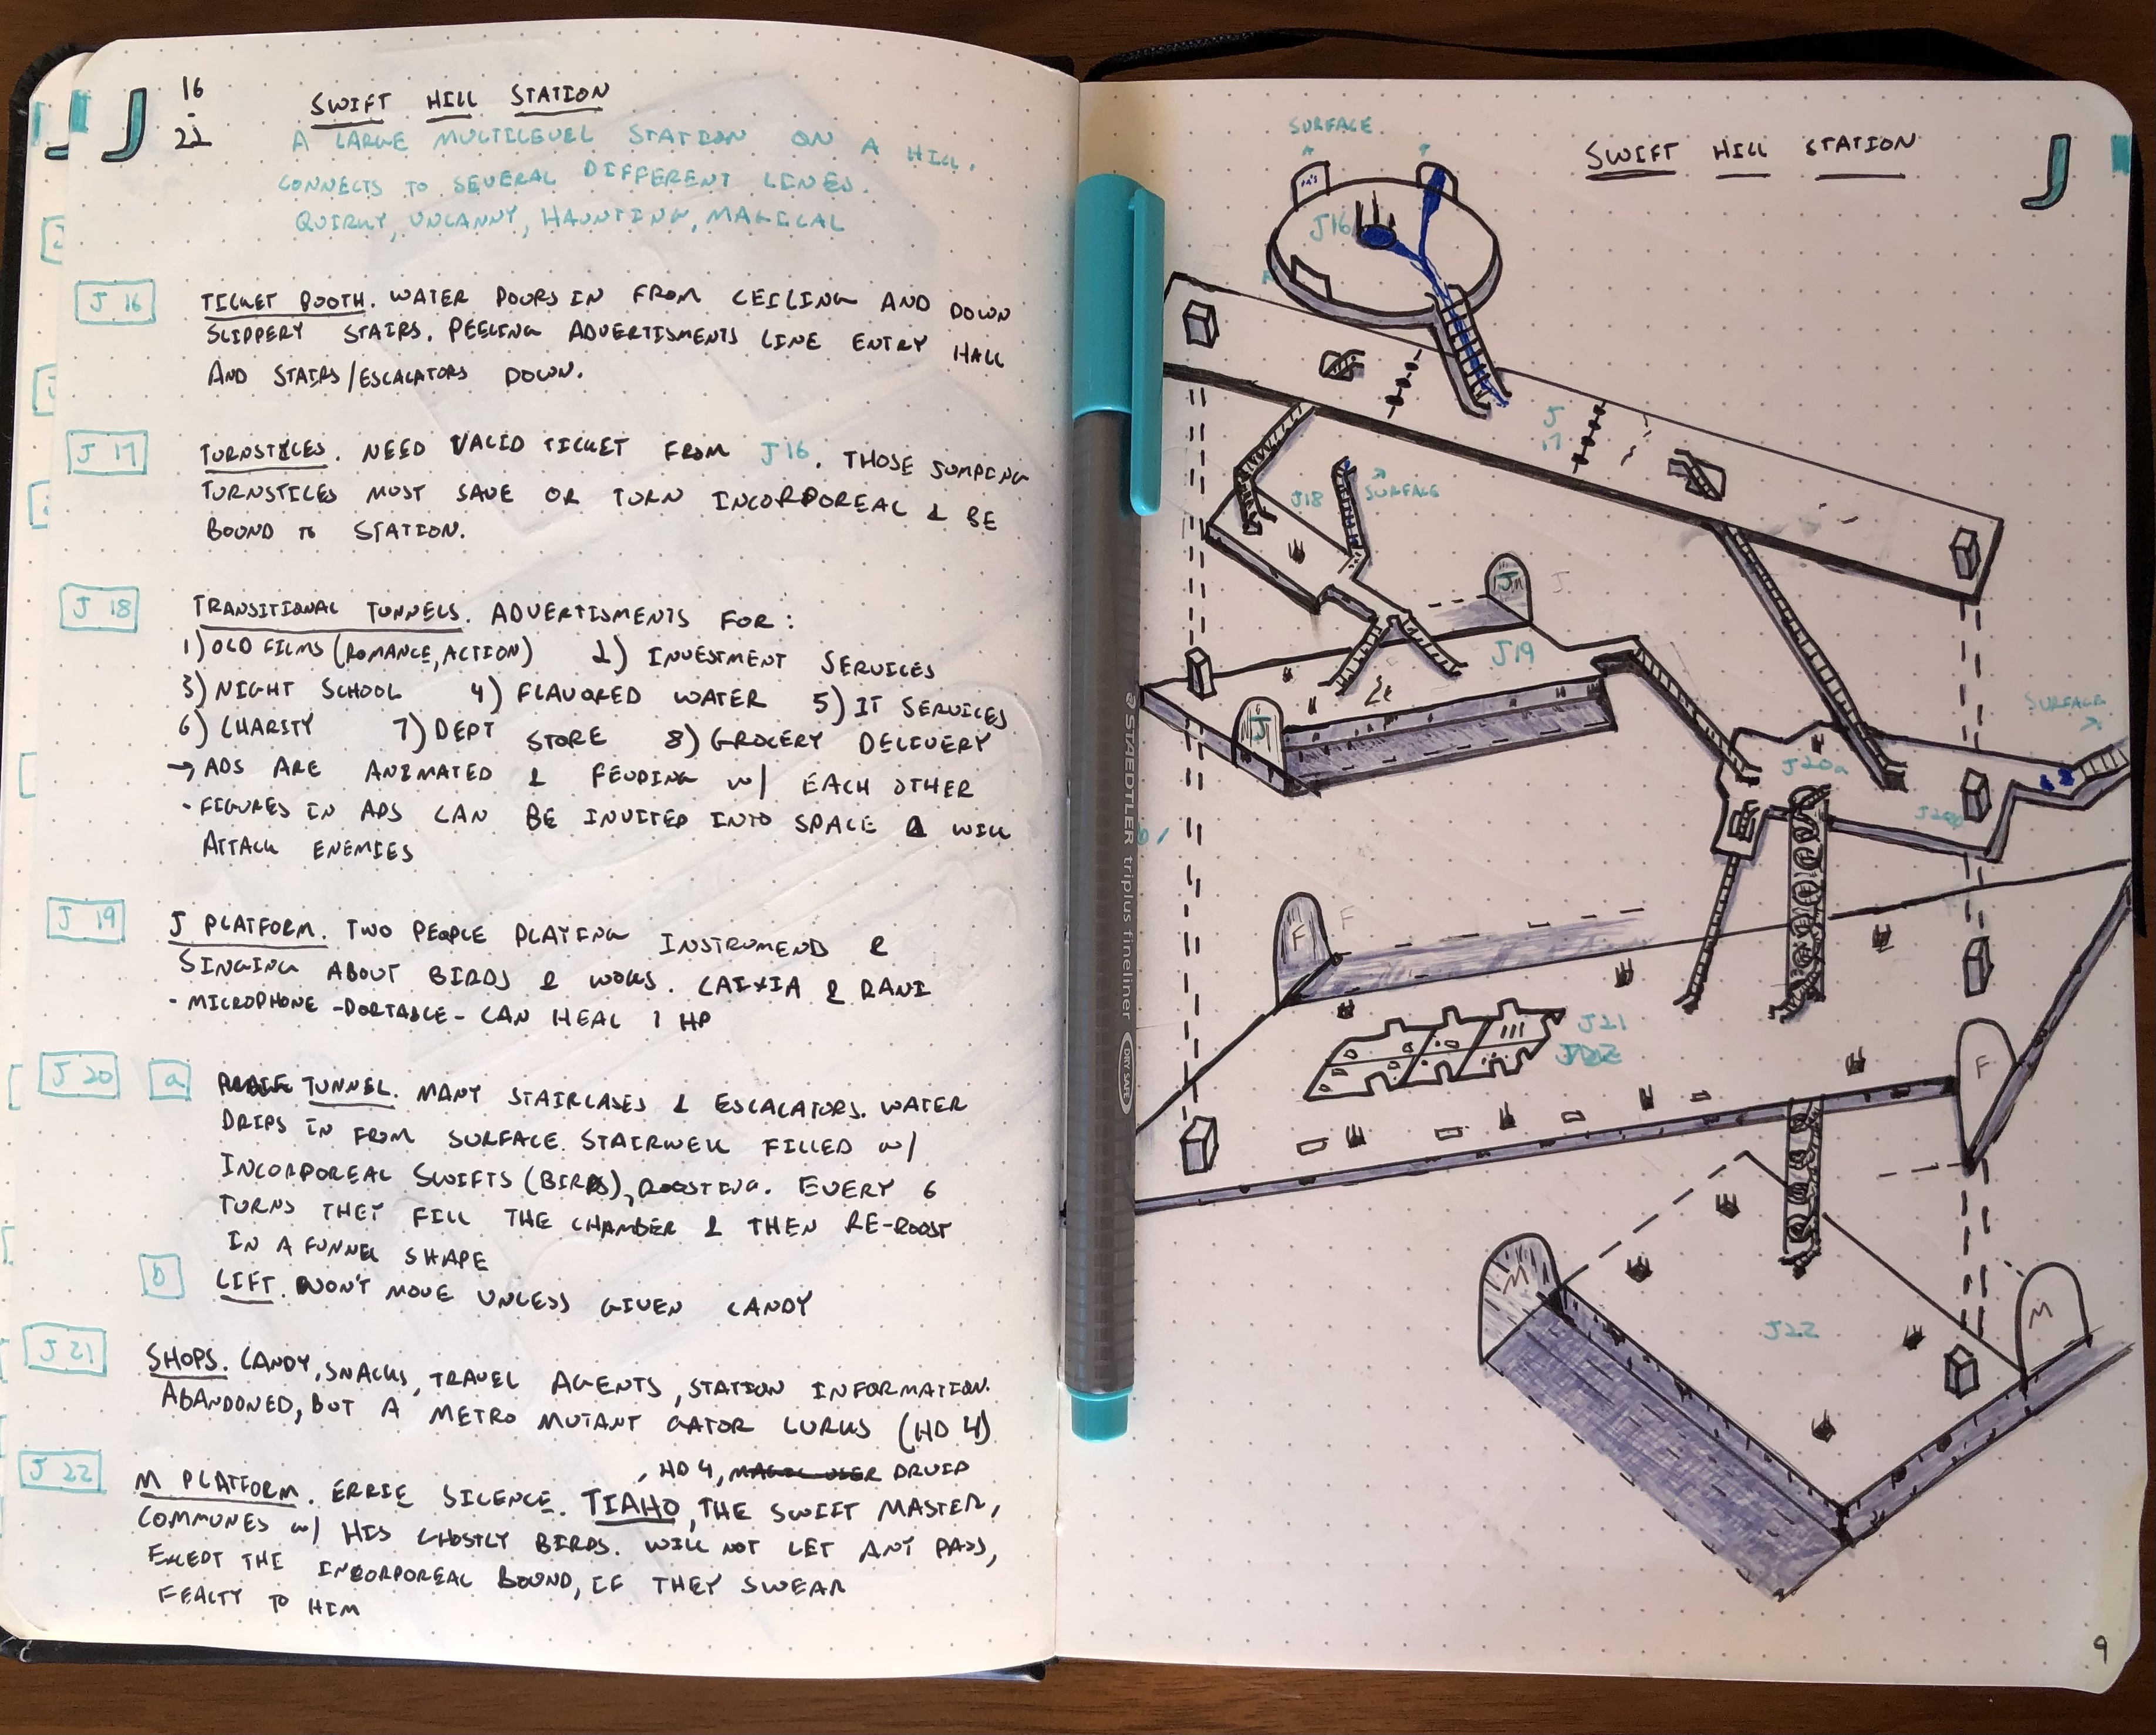 J 16 - 22
SWIFT HILL STATION
A LARGE MULTILEVEL STATION ON A HILL.
CONNECTS TO SEVERAL DIFFERENT LINES.
QUIRKY, UNCANNY, HAUNTING, MAGICAL
J 16
TICKET BOOTH. WATER POURS IN FROM CEILING AND DOWN
SLIPPERY STAIRS. PEELING ADVERTISMENTS LINE ENTRY HALL
AND STAIRS/ESCALATORS DOWN.
J 17
TURNSTYLES. NEED VALID TICKET FROM J16. THOSE JUMPING
TURNSTILES MUST SAVE OR TURN INCORPOREAL & BE
BOUND TO STATION.
J 18
TRANSITIONAL TUNNELS. ADVERTISMENTS FOR:
1) OLD FILMS (ROMANCE, ACTION) 2) INVESTMENT SERVICES
3) NIGHT SCHOOL 4) FLAVORED WATER 5) IT SERVICES
6) CHARITY 7) DEPT STORE 8) GROCERY DELIVERY
→ ADS ARE ANIMATED & FEUDING W/ EACH OTHER
- FIGURES IN ADS CAN BE INVITED INTO SPACE & WILL
ATTACK ENEMIES
J 19
J PLATFORM. TWO PEOPLE PLAYING INSTRUMENTS &
SINGING ABOUT BIRDS & WORK. CAIXIA & RANI
- MICROPHONE - PORTABLE - CAN HEAL 1 HP
J 20
a
TUNNEL. MANY STAIRCASES & ESCALATORS. WATER
DRIPS IN FROM SURFACE. STAIRWELL FILLED W/
INCORPOREAL SWIFTS (BIRDS), ROOSTING. EVERY 6
TURNS THEY FILL THE CHAMBER & THEN RE-ROOST
IN A FUNNEL SHAPE
b
LIFT. WON'T MOVE UNLESS GIVEN CANDY
J 21
SHOPS. CANDY, SNACKS, TRAVEL AGENTS, STATION INFORMATION.
ABANDONED, BUT A METRO MUTANT GATOR LURKS (HD 4)
J 22
, HD 4, MAGIC USER DRUID
M PLATFORM. ERRIE SILENCE. TIAHO, THE SWIFT MASTER,
COMMUNES W/ HIS GHOSTLY BIRDS. WILL NOT LET ANY PASS,
EXCEPT THE INCORPOREAL BOUND, IF THEY SWEAR
FEALTY TO HIM
SWIFT HILL STATION
J
SURFACE
J16
J 17
J18
SURFACE
J
J
J19
J
SURFACE
J20a
J20b
F
F
J21
F
M
J22
M
STAEDTLER triplus fineliner
DRY SAFE
9